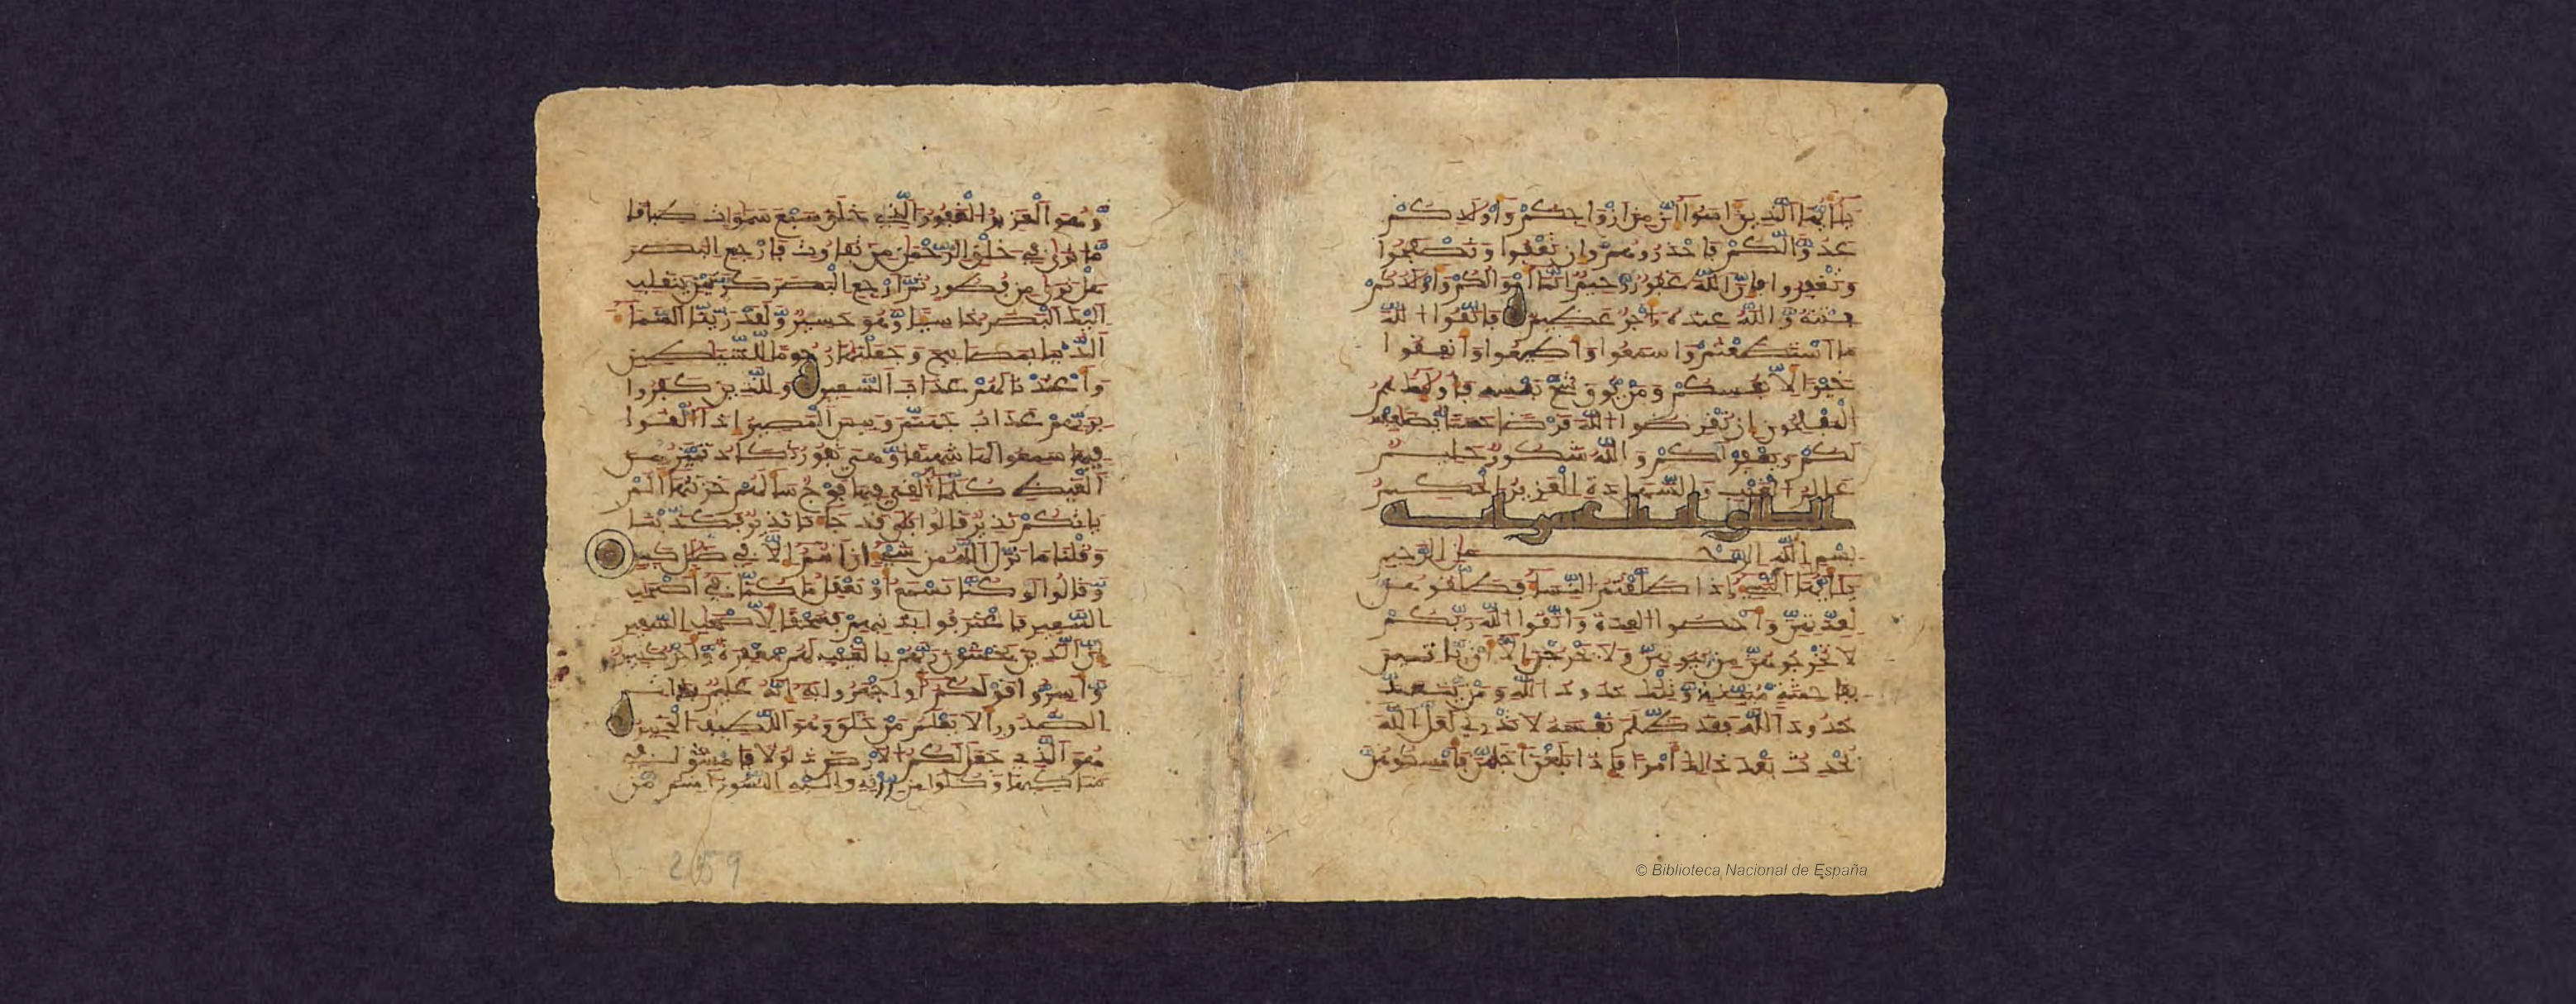 يٰأيها الذين ءامنوا إن من ازواجكم واولادكم
عدوا لكم فاحذروهم وان تعفوا وتصفحوا
وتغفروا فإن الله غفور رحيم انما أموالكم واولادكم
فتنة والله عنده أجر عظيم فاتقوا الله
ما استطعتم واسمعوا واطيعوا وانفقوا
خيرا لأنفسكم ومن يوق شح نفسه فأولئك هم
المفلحون إن تقرضوا الله قرضا حسنا يضعفه
لكم ويغفر لكم والله شكور حليم
علم الغيب والشهادة العزيز الحكيم
الطلاق عشر اية
بسم الله الرحمن الرحيم
يٰأيها النبيء إذا طلقتم النساء فطلقوهن
لعدتهن وأحصوا العدة واتقوا الله ربكم
لا تخرجوهن من بيوتهن ولا يخرجن إلا أن ياتين
بفاحشة مبينة وتلك حدود الله ومن يتعد
حدود الله فقد ظلم نفسه لا تدري لعل الله
يحدث بعد ذلك أمرا فإذا بلغن أجلهن فأمسكوهن
وهو العزيز الغفور الذي خلق سبع سموات طباقا
ما ترى في خلق الرحمن من تفاوت فارجع البصر
هل ترى من فطور ثم ارجع البصر كرتين ينقلب
اليك البصر خاسيا وهو حسير ولقد زينا السماء
الدنيا بمصابيح وجعلنها رجوما للشيطين
وأعتدنا لهم عذاب السعير وللذين كفروا
بربهم عذاب جهنم وبيس المصير إذا ألقوا
فيها سمعوا لها شهيقا وهي تفور تكاد تميز من
الغيظ كلما ألقي فيها فوج سألهم خزنتها ألم
ياتكم نذير قالوا بلى قد جاءنا نذير فكذبنا
وقلنا ما نزل الله من شيء إن أنتم إلا في ضلل كبير
وقالوا لو كنا نسمع أو نعقل ما كنا في أصحب
السعير فاعترفوا بذنبهم فسحقا لأصحب السعير
إن الذين يخشون ربهم بالغيب لهم مغفرة وأجر كبير
وأسروا قولكم أو اجهروا به إنه عليم بذات
الصدور ألا يعلم من خلق وهو اللطيف الخبير
هو الذي جعل لكم الأرض ذلولا فامشوا في
مناكبها وكلوا من رزقه واليه النشور أمنتم من
259
© Biblioteca Nacional de España